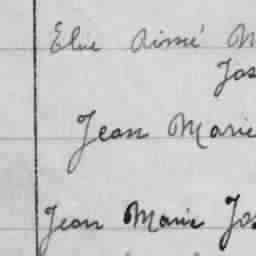 Elue Aimé M
Jos
Jean Marie
Jean Marie Jos